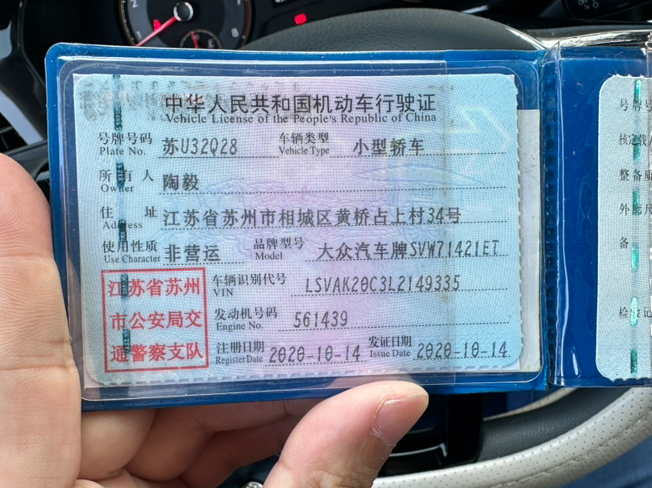 中华人民共和国机动车行驶证
Vehicle License of the People's Republic of China
号牌号码 苏U32Q28 车辆类型 小型轿车
Plate No. Vehicle Type
所有人 陶毅
Owner
住址 江苏省苏州市相城区黄桥占上村34号
Address
使用性质 非营运 品牌型号 大众汽车牌SVW71421ET
Use Character Model
江苏省苏州
市公安局交
通警察支队
车辆识别代号 LSVAK20C3L2149335
VIN
发动机号码 561439
Engine No.
注册日期 2020-10-14 发证日期 2020-10-14
Register Date Issue Date
号牌
核定载人
整备质
外廓尺
备
检验记